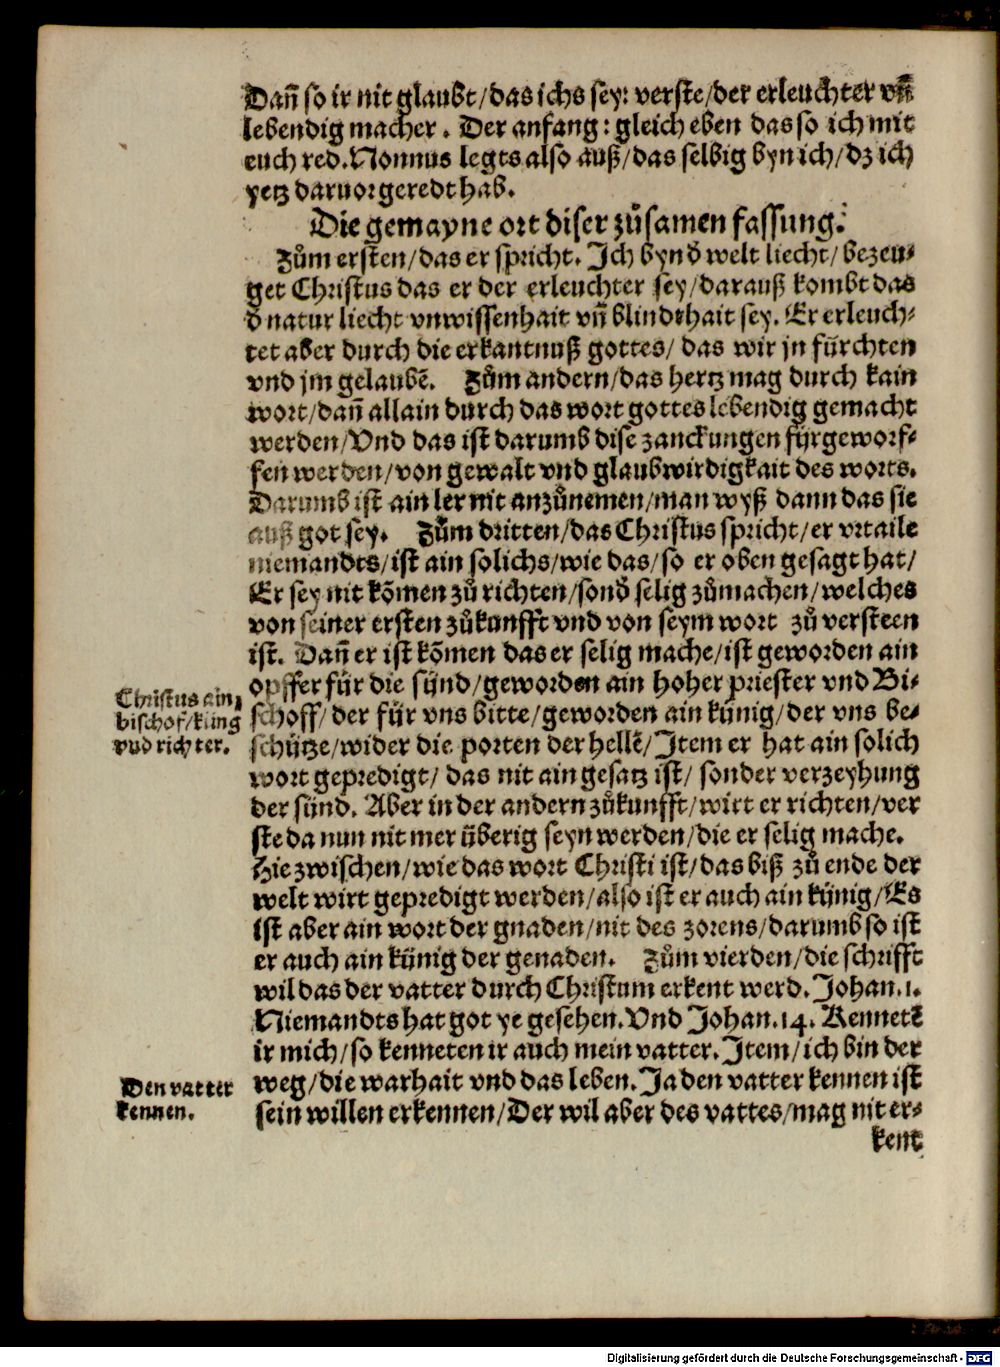 Dañ so ir nit glaubt/das ichs sey: verste/der erleuchter vñ
lebendig macher. Der anfang: gleich eben das so ich mit
euch red. Nonnus legts also auß/das selbig byn ich/dz ich
yetz daruor geredt hab.
Die gemayne ort diser zůsamen fassung.
Zům ersten/das er spricht. Ich byn d̕ welt liecht/bezeu-
get Christus das er der erleuchter sey/darauß kombt das
d̕ natur liecht vnwissenhait vñ blindthait sey. Er erleuch-
tet aber durch die erkantnuß gottes/das wir jn fürchten
vnd jm gelaubē. Zům andern/das hertz mag durch kain
wort/dañ allain durch das wort gottes lebendig gemacht
werden/Vnd das ist darumb dise zanckungen fürgeworf-
fen werden/von gewalt vnd glaubwirdigkait des worts.
Darumb ist ain ler nit anzůnemen/man wyß dann das sie
auß got sey. Zům dritten/das Christus spricht/er vrtaile
niemandts/ist ain solichs/wie das/so er oben gesagt hat/
Er sey nit kōmen zů richten/sond̕ selig zůmachen/welches
von seiner ersten zůkunfft vnd von seym wort zů versteen
ist. Dañ er ist kōmen das er selig mache/ist geworden ain
opffer für die sünd/geworden ain hoher priester vnd Bi-
schoff/der für vns bitte/geworden ain künig/der vns be-
schütze/wider die porten der hellē/Item er hat ain solich
wort gepredigt/das nit ain gesatz ist/sonder verzeyhung
der sünd. Aber in der andern zůkunfft/wirt er richten/ver
ste da nun nit mer überig seyn werden/die er selig mache.
Hie zwischen/wie das wort Christi ist/das biß zů ende der
welt wirt gepredigt werden/also ist er auch ain künig/Es
ist aber ain wort der gnaden/nit des zorens/darumb so ist
er auch ain künig der genaden. Zům vierden/die schrifft
wil das der vatter durch Christum erkent werd. Johan.1.
Niemandts hat got ye gesehen. Vnd Johan.14. Kennetē
ir mich/so kenneten ir auch mein vatter. Item/ich bin der
weg/die warhait vnd das leben. Ja den vatter kennen ist
sein willen erkennen/Der wil aber des vattes/mag nit er-
kent
Christus ain
bischof/kung
vnd richter.
Den vatter
kennen.
Digitalisierung gefördert durch die Deutsche Forschungsgemeinschaft - DFG